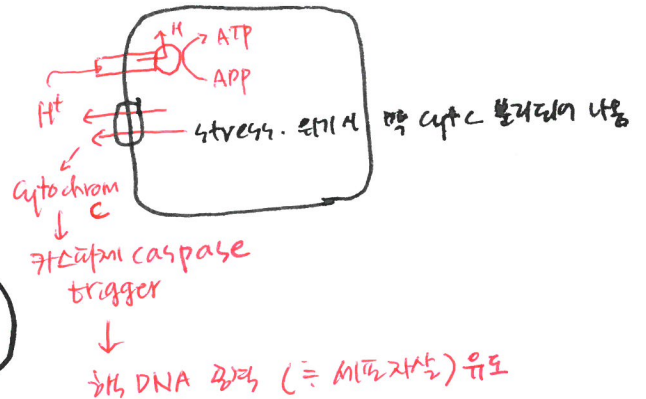 H
ATP
APP
H+
stress. 위기시 막 cyt c 분리되어 나옴
cytochrom
c
카스파제 caspase
trigger
핵 DNA 응축 (≒ 세포자살) 유도